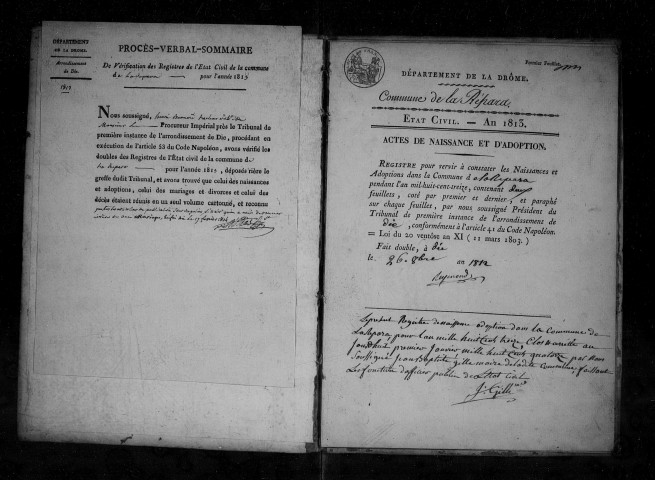 DÉPARTEMENT
DE LA DROME.
Arrondissement
de Die.
1813
PROCÈS-VERBAL-SOMMAIRE
De Vérification des Registres de l'Etat Civil de la commune
de pour l'année 1813
Nous soussigné,
Procureur Impérial près le Tribunal de
première instance de l'arrondissement de Die, procédant en
exécution de l'article 53 du Code Napoléon, avons vérifié les
doubles des Registres de l'État civil de la commune de
la Répara pour l'année 1813, déposés rière le
greffe dudit Tribunal, et avons trouvé que celui des naissances
et adoptions, celui des mariages et divorces et celui des
décès étaient réunis en un seul volume cartonné, et reconnu
Premier Feuillet
DÉPARTEMENT DE LA DRÔME.
Commune de la Répara
ETAT CIVIL. — AN 1813.
ACTES DE NAISSANCE ET D'ADOPTION.
REGISTRE pour servir à constater les Naissances et
Adoptions dans la Commune d la Repara
pendant l'an mil-huit-cent-treize, contenant deux
feuillets, coté par premier et dernier, et paraphé
sur chaque feuillet, par nous soussigné Président du
Tribunal de première instance de l'arrondissement de
Die, conformément à l'article 41 du Code Napoléon.
= Loi du 20 ventôse an XI ( 11 mars 1803. )
Fait double, à Die
le 26. 8bre an 1812
Reymond
Le présent Registre de naissance adoption dans la Commune de
La Répara pour l'an mille huit cent treize, Clos
jourdhuit premier Janvier mille huit cent quatorze par nous
Soussigné Jean Baptiste Gille maire de ladite Commune faisant
Les fonctions d'officier public de L'état civil
J. Gille